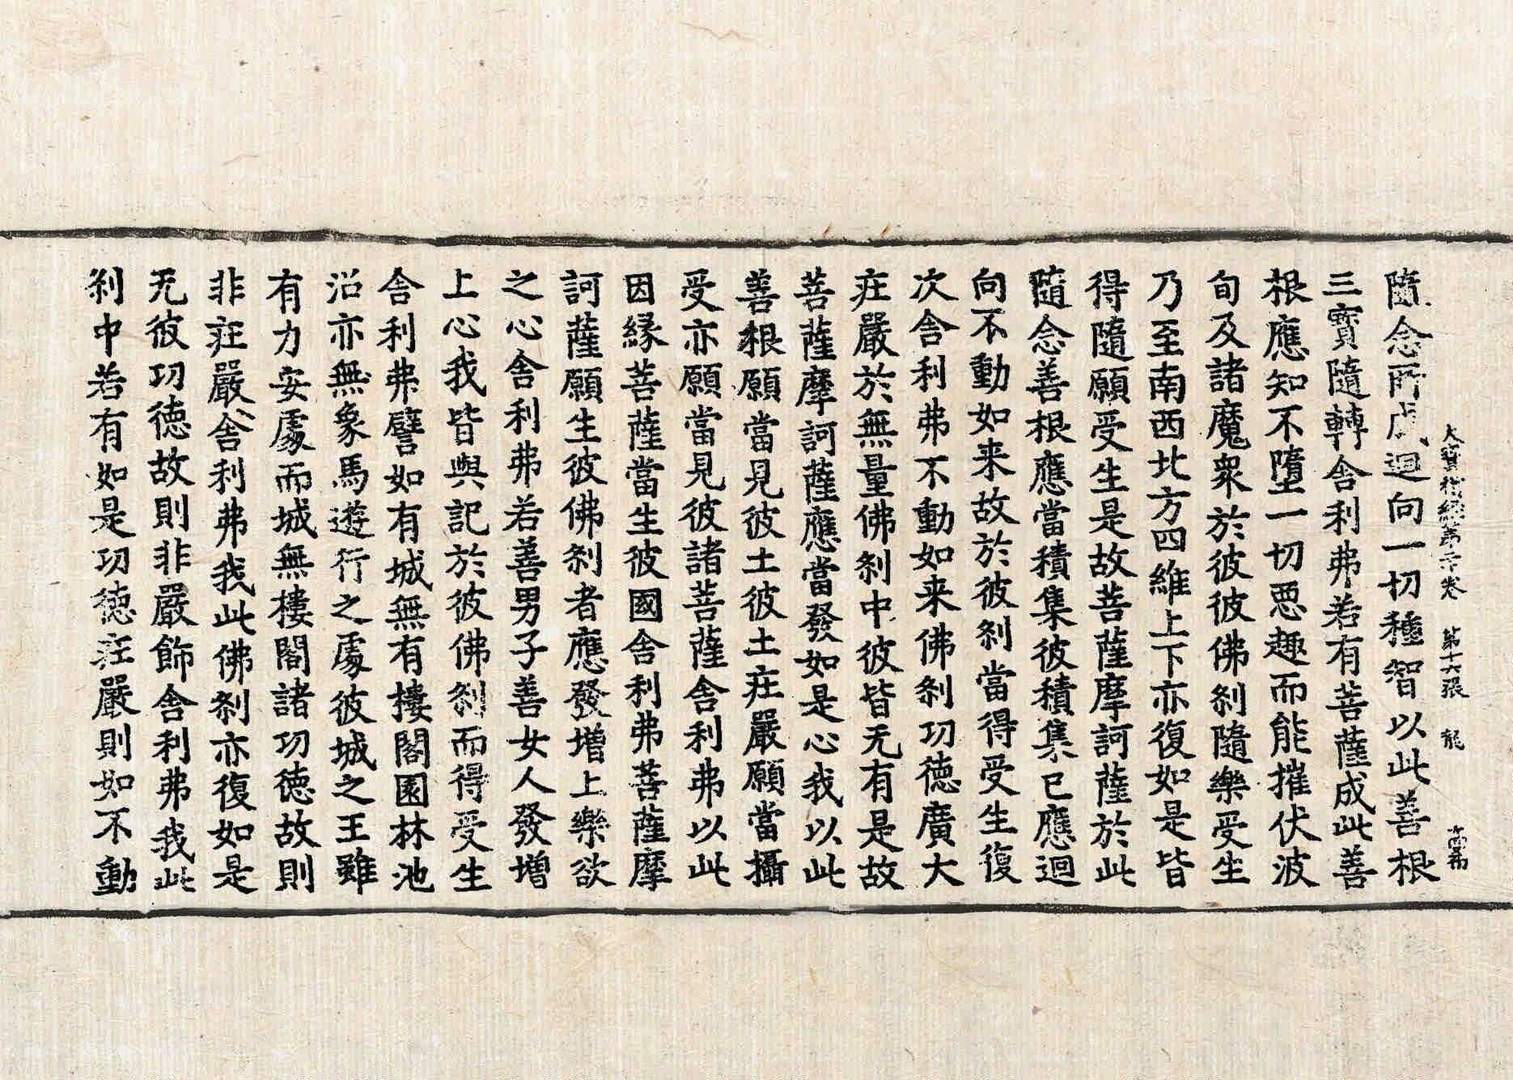 大寶積經第二十卷　第十六張　龍
隨念所成迴向一切種智以此善根
三寶隨轉舍利弗若有菩薩成此善
根應知不墮一切惡趣而能摧伏波
旬及諸魔衆於彼彼佛刹隨樂受生
乃至南西北方四維上下亦復如是皆
得隨願受生是故菩薩摩訶薩於此
隨念善根應當積集彼積集已應迴
向不動如来故於彼刹當得受生復
次舍利弗不動如来佛刹功德廣大
庄嚴於無量佛刹中彼皆无有是故
菩薩摩訶薩應當發如是心我以此
善根願當見彼土彼土庄嚴願當攝
受亦願當見彼諸菩薩舍利弗以此
因縁菩薩當生彼國舍利弗菩薩摩
訶薩願生彼佛刹者應發增上樂欲
之心舍利弗若善男子善女人發增
上心我皆與記於彼佛刹而得受生
舍利弗譬如有城無有樓閣園林池
沼亦無象馬遊行之處彼城之王雖
有力安處而城無樓閣諸功德故則
非庄嚴舍利弗我此佛刹亦復如是
无彼功德故則非嚴飾舍利弗我此
刹中若有如是功德庄嚴則如不動